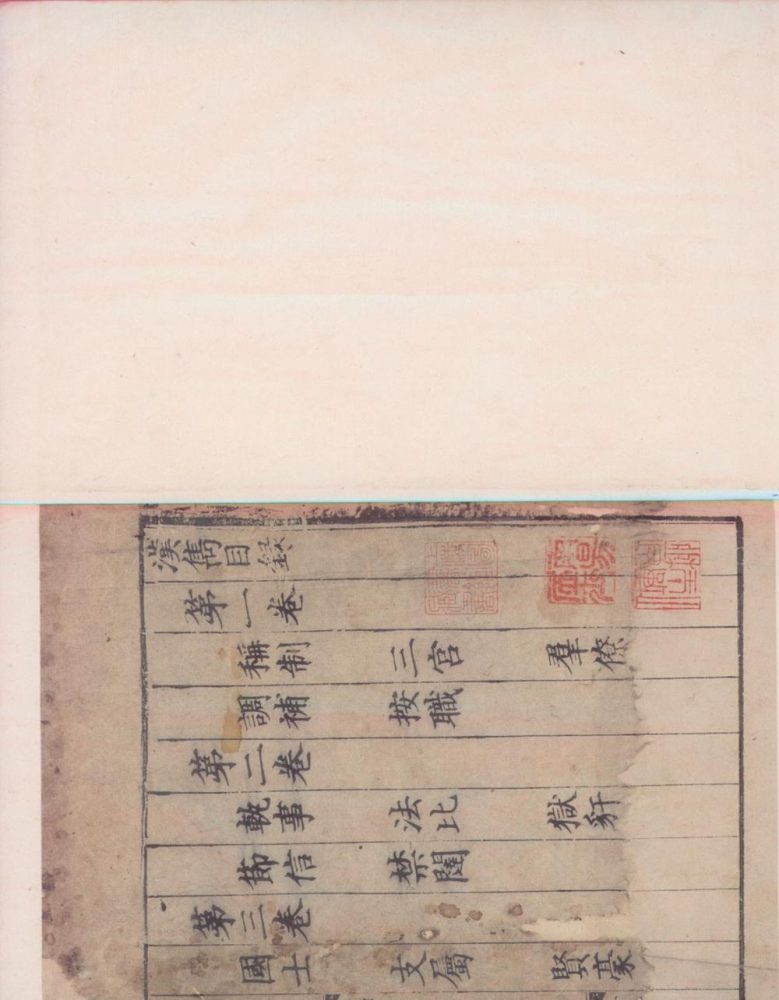 漢雋目錄
第一卷
稱制 三宫 羣僚
調補 按職
第二卷
執事 法比 獄豻
節信 禁闥
第三卷
國士 支屬 賢豪